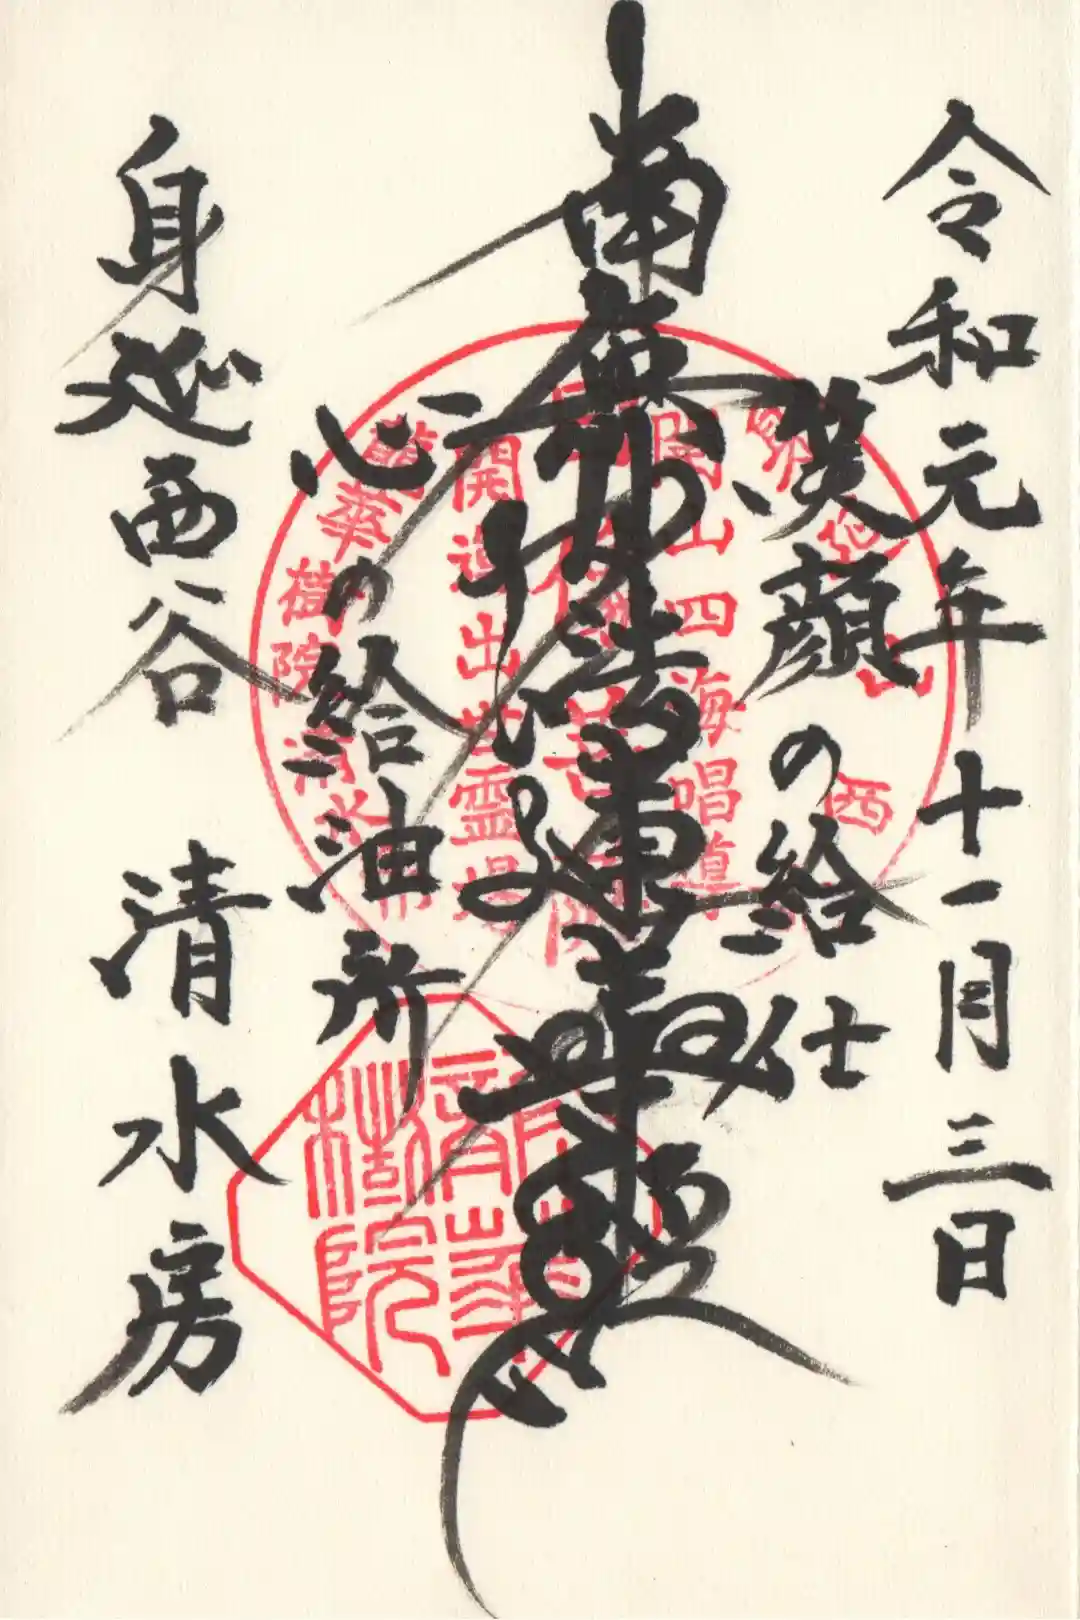 令和元年十一月三日
笑顔の給仕
南無妙法蓮華経
心の給油所
身延西谷 清水房
開山四海唱導
開運出世霊場
龍華樹院清水房
龍華
樹院